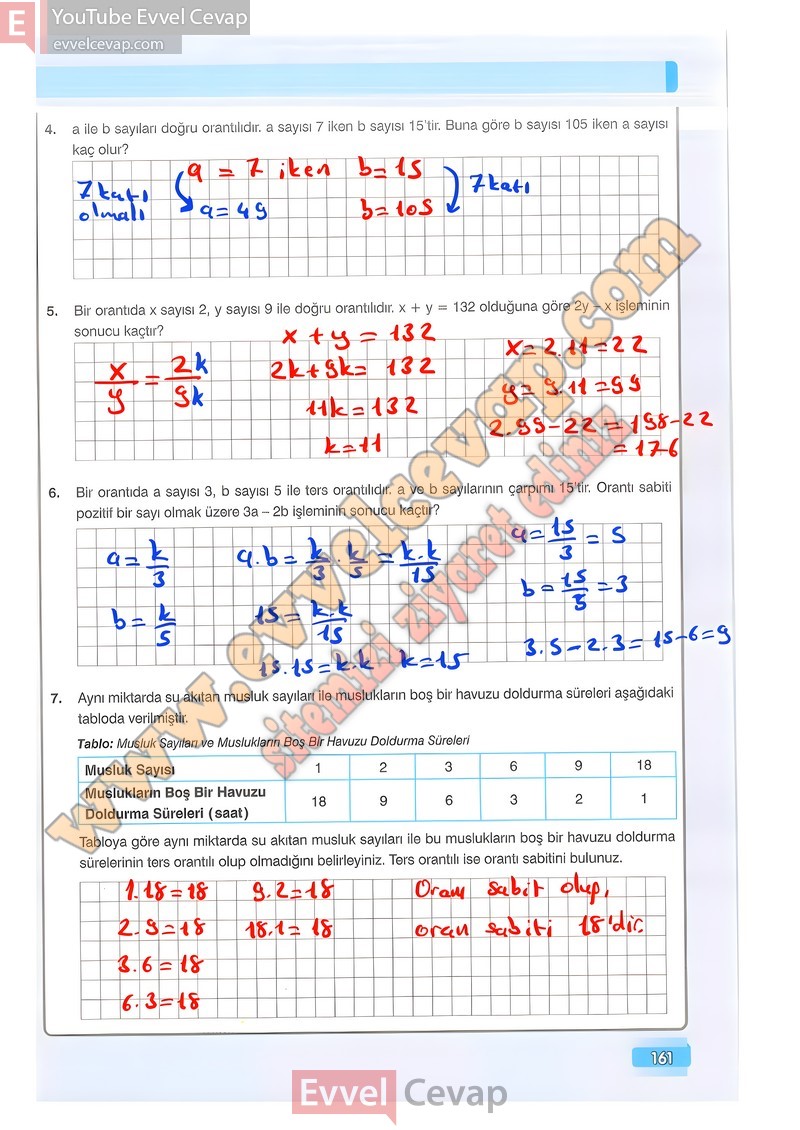 E YouTube Evvel Cevap
evvelcevap.com
4. a ile b sayıları doğru orantılıdır. a sayısı 7 iken b sayısı 15'tir. Buna göre b sayısı 105 iken a sayısı
kaç olur?
7 katı olmalı
a = 7 iken b = 15
a = 49 b = 105
7 katı
5. Bir orantıda x sayısı 2, y sayısı 9 ile doğru orantılıdır. x + y = 132 olduğuna göre 2y – x işleminin
sonucu kaçtır?
x/y = 2k/9k
x + y = 132
2k + 9k = 132
11k = 132
k = 11
x = 2.11 = 22
y = 9.11 = 99
2.99 - 22 = 198 - 22
= 176
6. Bir orantıda a sayısı 3, b sayısı 5 ile ters orantılıdır. a ve b sayılarının çarpımı 15'tir. Orantı sabiti
pozitif bir sayı olmak üzere 3a – 2b işleminin sonucu kaçtır?
a = k/3
b = k/5
a.b = k/3 . k/5 = k.k/15
15 = k.k/15
15.15 = k.k k = 15
a = 15/3 = 5
b = 15/5 = 3
3.5 - 2.3 = 15 - 6 = 9
7. Aynı miktarda su akıtan musluk sayıları ile muslukların boş bir havuzu doldurma süreleri aşağıdaki
tabloda verilmiştir.
Tablo: Musluk Sayıları ve Muslukların Boş Bir Havuzu Doldurma Süreleri
Musluk Sayısı 1 2 3 6 9 18
Muslukların Boş Bir Havuzu
Doldurma Süreleri (saat) 18 9 6 3 2 1
Tabloya göre aynı miktarda su akıtan musluk sayıları ile bu muslukların boş bir havuzu doldurma
sürelerinin ters orantılı olup olmadığını belirleyiniz. Ters orantılı ise orantı sabitini bulunuz.
1.18 = 18 9.2 = 18 Oranı sabit olup,
2.9 = 18 18.1 = 18 oran sabiti 18'dir.
3.6 = 18
6.3 = 18
www.evvelcevap.com
sitemizi ziyaret ediniz
161
Evvel Cevap